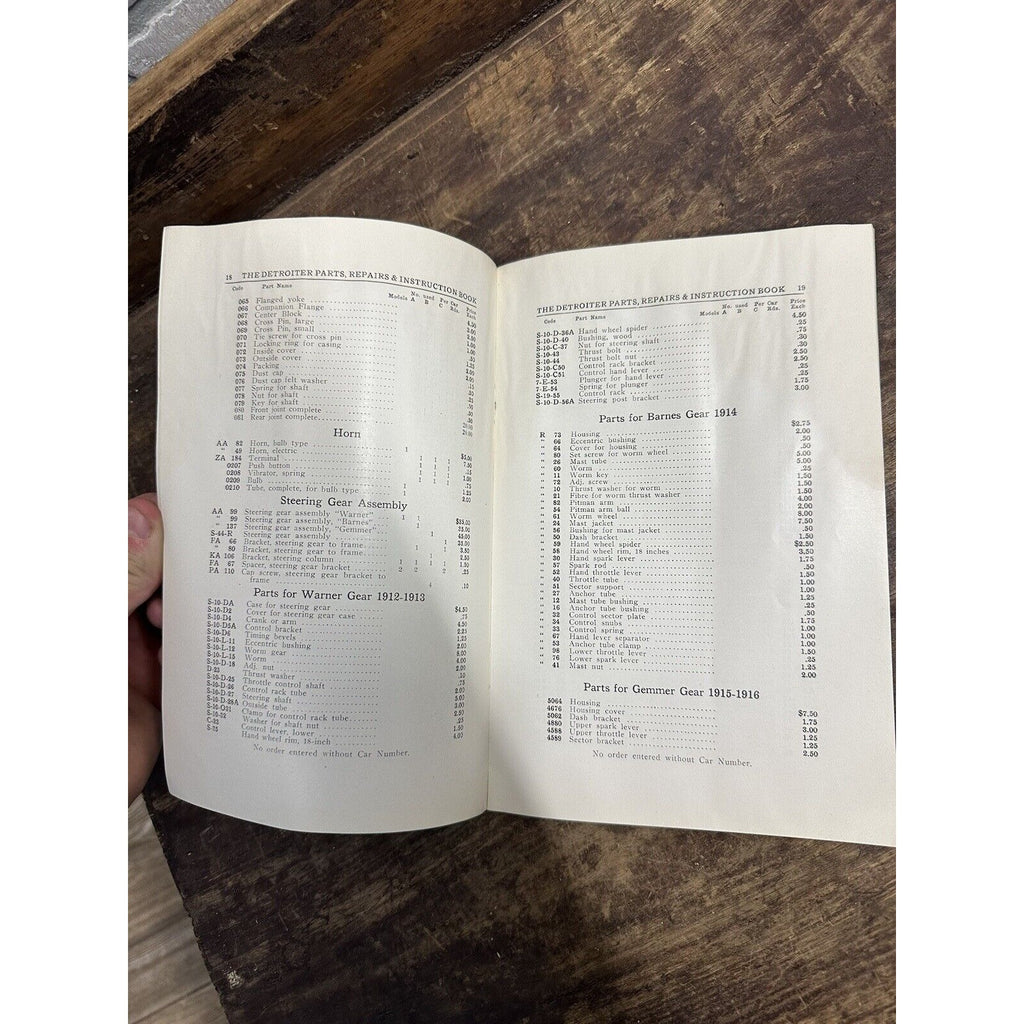 18 THE DETROITER PARTS, REPAIRS & INSTRUCTION BOOK
Code Part Name No. used Per Car Price
Models A B C Rds. Each
065 Flanged yoke
066 Companion Flange
067 Center Block
068 Cross Pin, large
069 Cross Pin, small
070 Tie screw for cross pin
071 Locking ring for casing
072 Inside cover
073 Outside cover
074 Packing
075 Dust cap
076 Dust cap felt washer
077 Spring for shaft
078 Nut for shaft
079 Key for shaft
080 Front joint complete
061 Rear joint complete
Horn
AA 82 Horn, bulb type
" 49 Horn, electric
ZA 184 Terminal
0207 Push button
0208 Vibrator, spring
0209 Bulb
0210 Tube, complete, for bulb type
Steering Gear Assembly
AA 99 Steering gear assembly "Warner"
" 99 Steering gear assembly, "Barnes"
" 137 Steering gear assembly, "Gemmer"
S-44-R Steering gear assembly
FA 66 Bracket, steering gear to frame
" 80 Bracket, steering gear to frame
KA 106 Bracket, steering column
FA 67 Spacer, steering gear bracket
PA 110 Cap screw, steering gear bracket to
frame 4 .10
Parts for Warner Gear 1912-1913
S-10-DA Case for steering gear $4.50
S-10-D2 Cover for steering gear case .75
S-10-D4 Crank or arm 4.50
S-10-D5A Control bracket 2.25
S-10-D6 Timing bevels 1.25
S-10-L-11 Eccentric bushing 2.00
S-10-L-12 Worm gear 8.00
S-10-L-15 Worm 4.00
S-10-D-18 Adj. nut 2.00
D-23 Thrust washer .10
S-10-D-25 Throttle control shaft .75
S-10-D-26 Control rack tube 2.00
S-10-D-27 Steering shaft 5.00
S-10-D-28A Outside tube 3.00
S-10-O21 Clamo for control rack tube 2.50
S-10-32 Washer for shaft nut .25
C-33 Control lever, lower 1.50
S-35 Hand wheel rim, 18-inch 4.00
No order entered without Car Number.
THE DETROITER PARTS, REPAIRS & INSTRUCTION BOOK 19
Code Part Name No. used Per Car Price
Models A B C Rds. Each
S-10-D-36A Hand wheel spider 4.50
S-10-D-40 Bushing, wood .25
S-10-C-37 Nut for steering shaft .75
S-10-43 Thrust bolt .30
S-10-44 Thrust bolt nut .25
S-10-C50 Control rack bracket 2.50
S-10-C51 Control hand lever 2.50
7-E-53 Plunger for hand lever .25
7-E-54 Spring for plunger .25
S-19-55 Control rack 1.75
S-10-D-56A Steering post bracket 3.00
Parts for Barnes Gear 1914
R 73 Housing $2.75
" 66 Eccentric bushing 2.00
" 64 Cover for housing .50
" 80 Set screw for worm wheel .50
" 26 Mast tube 5.00
" 60 Worm 5.00
" 11 Worm key .25
" 72 Adj. screw 1.50
" 10 Thrust washer for worm
" 21 Fibre for worm thrust washer
" 82 Pitman arm
" 54 Pitman arm ball
" 61 Worm wheel 8.00
" 24 Mast jacket 7.50
" 56 Bushing for mast jacket .50
" 50 Dash bracket
" 59 Hand wheel spider $2.50
" 58 Hand wheel rim, 18 inches 3.50
" 30 Hand spark lever 1.75
" 57 Spark rod .50
" 52 Hand throttle lever 1.50
" 40 Throttle tube 1.00
" 51 Sector support 1.00
" 27 Anchor tube 1.50
" 12 Mast tube bushing 1.25
" 16 Anchor tube bushing .25
" 32 Control sector plate .50
" 34 Control snubs 1.75
" 33 Control spring 1.00
" 67 Hand lever separator 1.00
" 53 Anchor tube clamp 1.00
" 98 Lower throttle lever 1.50
" 76 Lower spark lever .25
" 41 Mast nut 1.25
2.00
Parts for Gemmer Gear 1915-1916
5064 Housing $7.50
4676 Housing cover 1.75
5062 Dash bracket 3.00
4880 Upper spark lever 1.25
4588 Upper throttle lever 1.25
4589 Sector bracket 2.50
No order entered without Car Number.